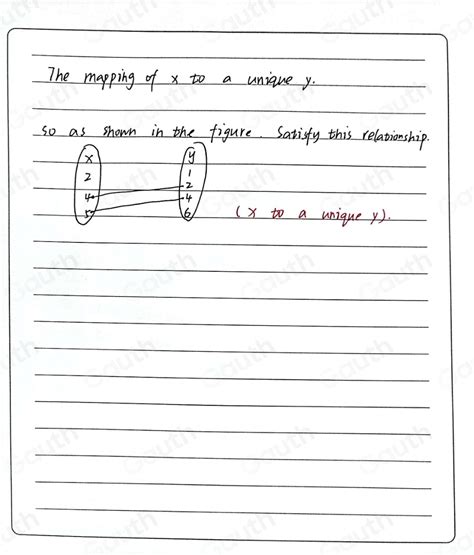 The mapping of x to a unique y.
so as shown in the figure. Satisfy this relationship.
x y
2 1
4 2
5 4
6
(x to a unique y).